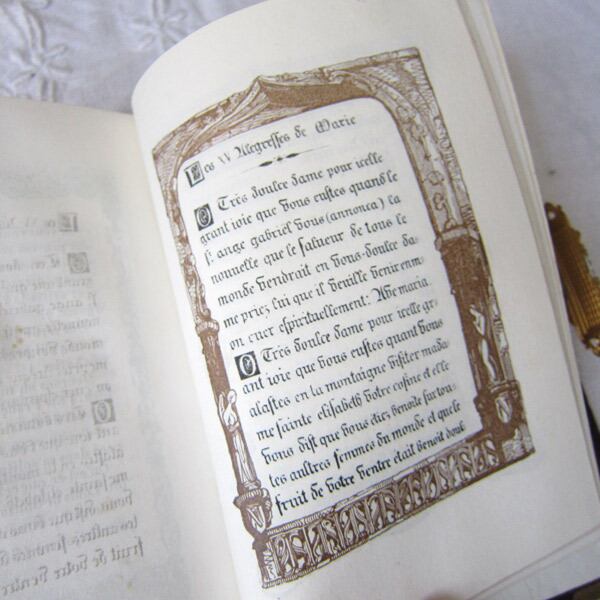 Les XV Alegresses de Marie
O Très doulce dame pour icelle
grant ioie que vous eustes quand le
s. ange gabriel vous (annonca) la
nouvelle que le saueur de tous le
monde vendrait en vous-doulce da-
me priez lui que il veuille venir em-
on cuer espirituellement. Ave maria.
O Très doulce dame pour icelle gr-
ant ioie que vous eustes quant vous
alastes en la montaigne visiter mada-
me sainte elisabeth votre cosine et elle
vous dist que vous étiez benoite sur tou-
tes aultres femmes du monde et que le
fruit de votre ventre etait benoit doul-